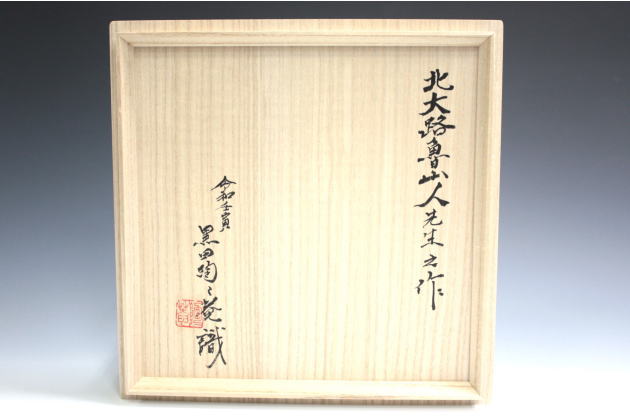 北大路魯山人先生之作
令和壬寅
黒田陶々菴識